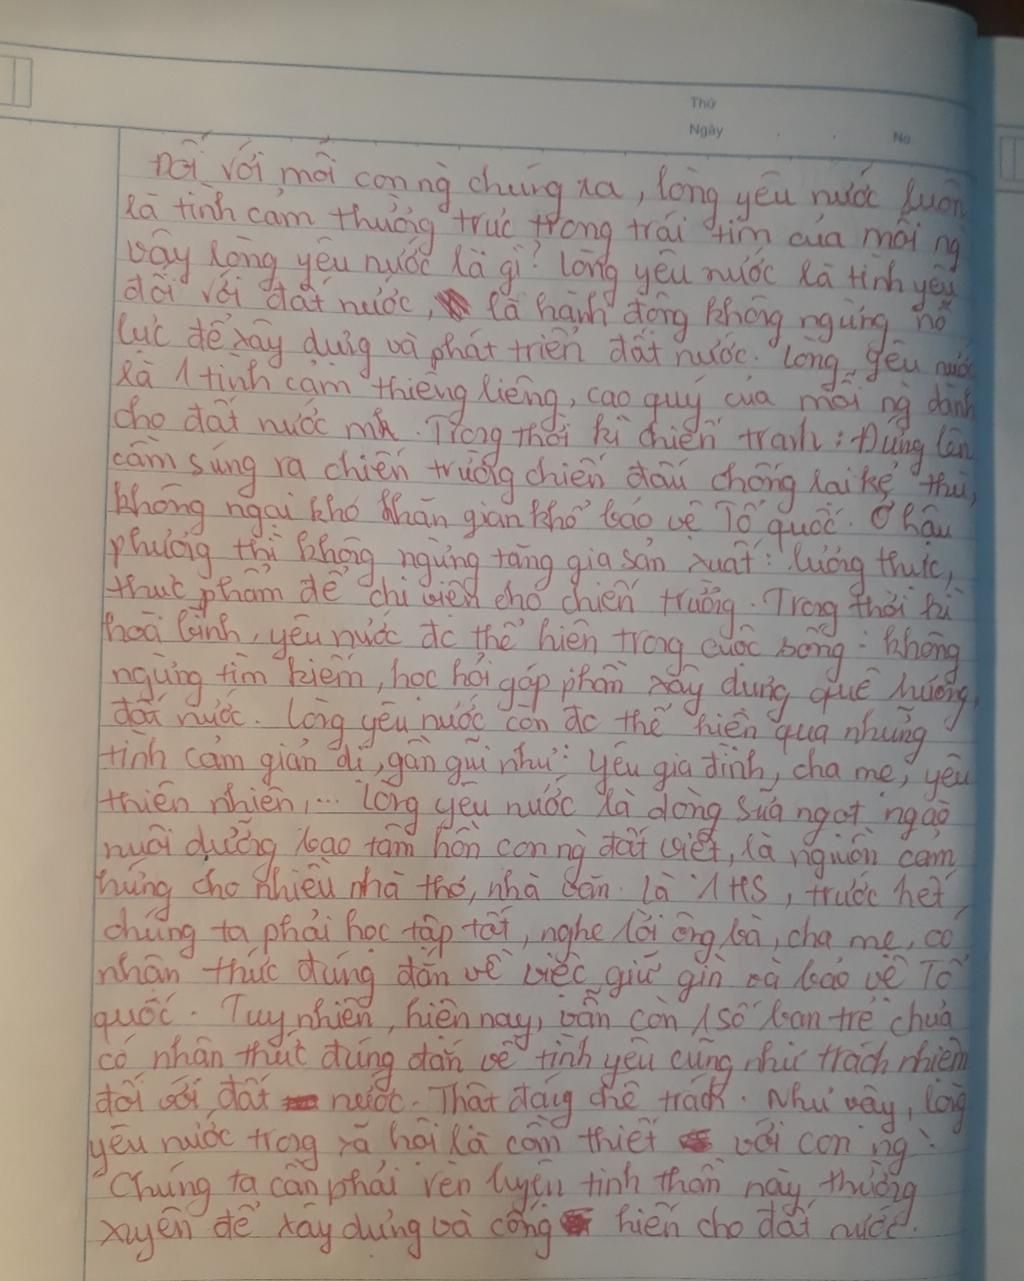 Thứ
Ngày
No
Đối với mỗi con ng chúng ta, lòng yêu nước luôn
là tình cảm thường trực trong trái tim của mỗi ng
Vậy lòng yêu nước là gì? Lòng yêu nước là tình yêu
đối với đất nước, là hành động không ngừng nỗ
lực để xây dựng và phát triển đất nước. Lòng yêu nước
là 1 tình cảm thiêng liêng, cao quý của mỗi ng dành
cho đất nước mk. Trong thời kì chiến tranh: Đứng lên
cầm súng ra chiến trường chiến đấu chống lại kẻ thù,
không ngại khó khăn gian khổ bảo vệ Tổ quốc. Ở hậu
phương thì không ngừng tăng gia sản xuất: lương thực,
thực phẩm để chi viện cho chiến trường. Trong thời kì
hoà bình, yêu nước đc thể hiện trong cuộc sống: không
ngừng tìm kiếm, học hỏi góp phần xây dựng quê hương,
đất nước. Lòng yêu nước còn đc thể hiện qua những
tình cảm giản dị, gần gũi như: yêu gia đình, cha mẹ, yêu
thiên nhiên,... Lòng yêu nước là dòng sữa ngọt ngào
nuôi dưỡng bao tâm hồn con ng đất Việt, là nguồn cảm
hứng cho nhiều nhà thơ, nhà văn. Là 1 HS, trước hết,
chúng ta phải học tập tốt, nghe lời ông bà, cha mẹ, có
nhận thức đúng đắn về việc giữ gìn và bảo vệ Tổ
quốc. Tuy nhiên, hiện nay, vẫn còn 1 số bạn trẻ chưa
có nhận thức đúng đắn về tình yêu cũng như trách nhiệm
đối với đất nước. Thật đáng chê trách. Như vậy, lòng
yêu nước trong xã hội là cần thiết với con ng.
Chúng ta cần phải rèn luyện tinh thần này thường
xuyên để xây dựng và cống hiến cho đất nước.